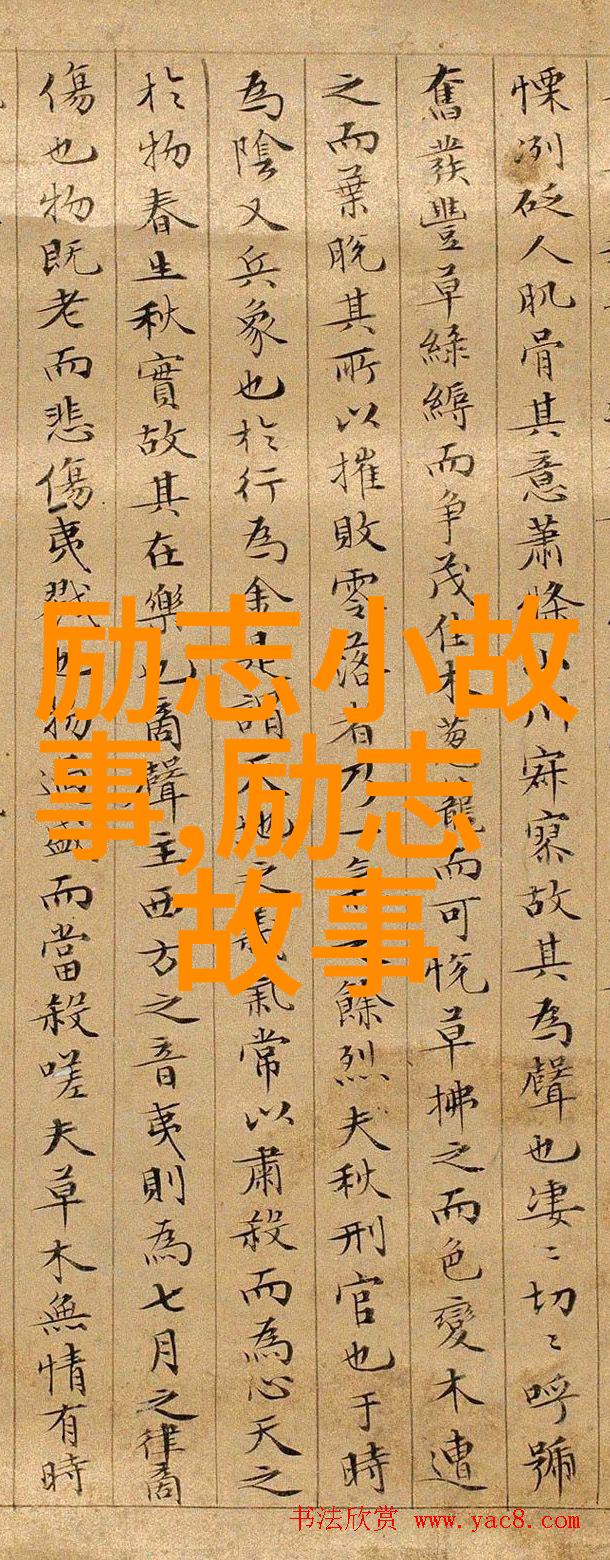 慄冽砭人肌骨其意蕭條山川寂寥故其為聲也凄〻切〻呼號
奮發豐草綠縟而争茂佳木葱蘢而可悅草拂之而色變木遭
之而葉脫其所以摧敗零落者乃一餘烈夫秋刑官也于時
為陰又兵象也於行為金是謂天地之義氣常以肅殺而為心天之
於物春生秋實故其在樂也商聲主西方之音夷則為七月之律商
傷也物既老而悲傷夷戮也物過盛而當殺嗟夫草木無情有時
励志小故
事,励志
故事
书法欣赏 www.yac8.com